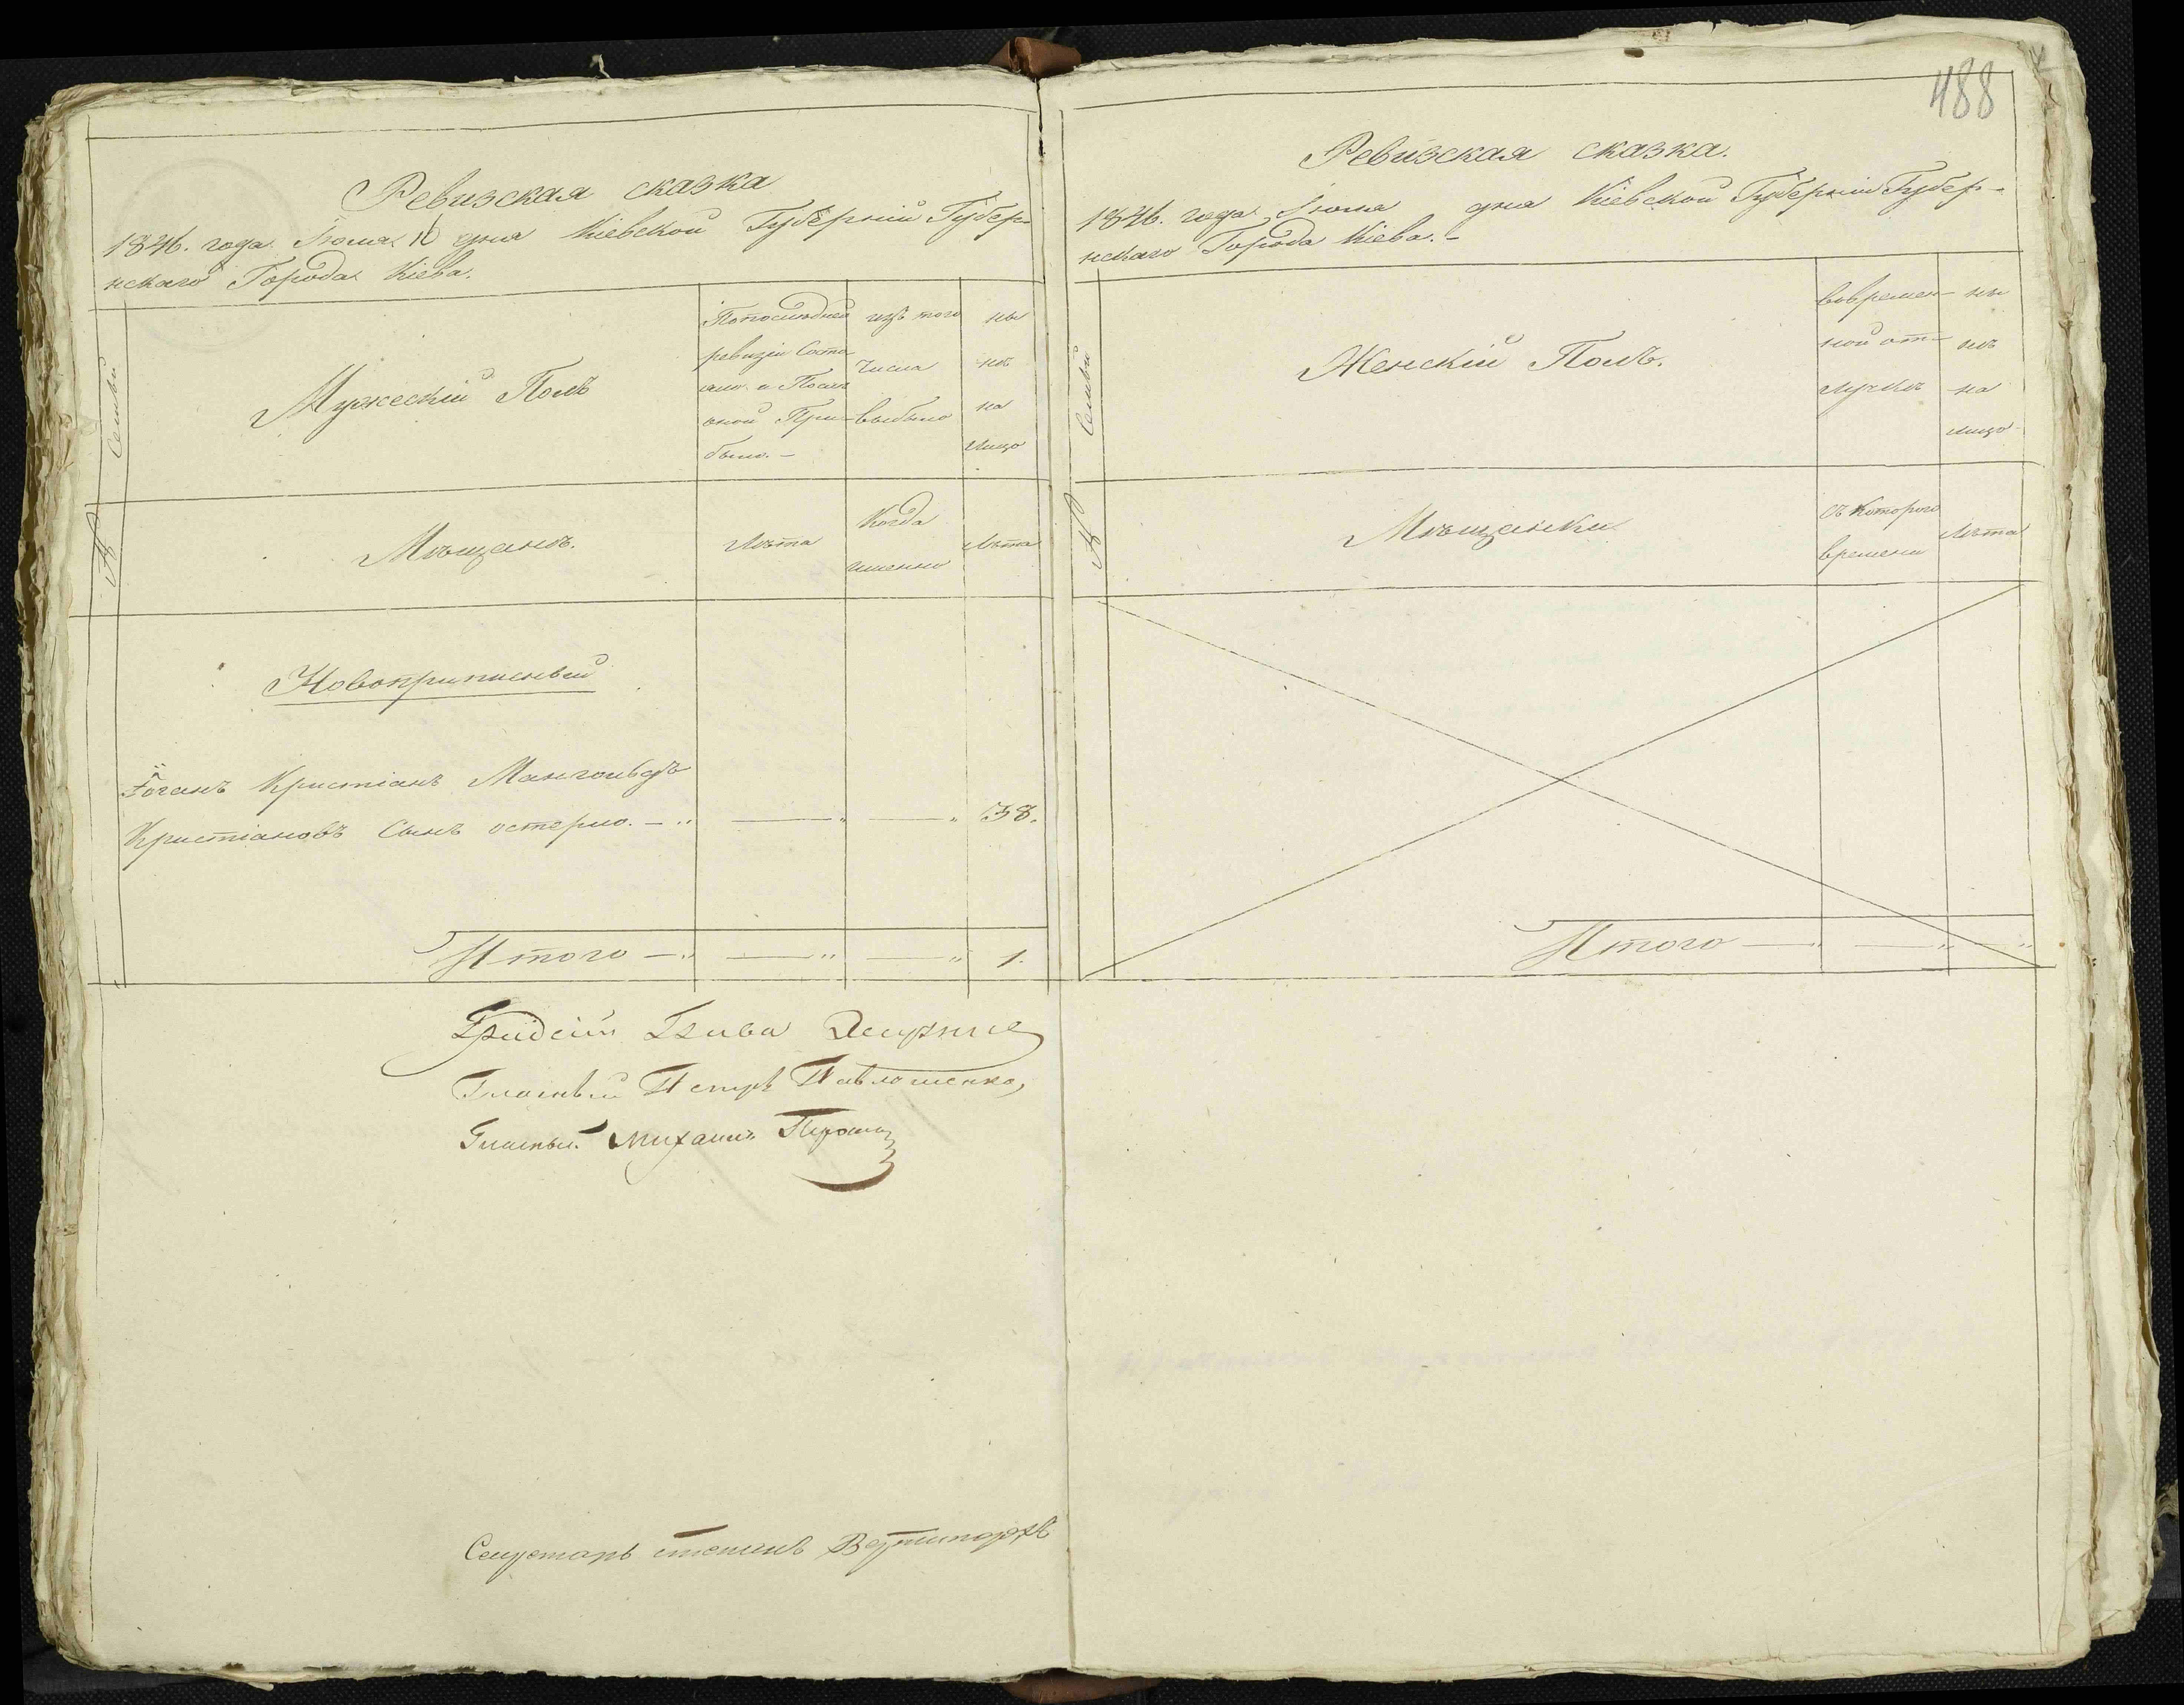 Ревизская сказка
1846. года Іюля 16 дня Кіевской Губерніи Губер-
нскаго Города Кіева.
№ Семьи
Мужескій Полъ
Попоследней
ревизіи Состо
яло и После
оной При-
было. -
изъ того
числа
выбыло
ны
нѣ
на
лицо
Мѣщанъ.
Лѣта
Когда
именно
Лѣта
Новоприписный
Іоганъ Кристіанъ Мангольдъ
Кристіановъ Сынъ 38.
Итого 1.
Глава
Гласный Петръ
Гласный Михаилъ
Секретарь
488
Ревизская сказка.
1846. года Іюля дня Кіевской Губерніи Губер-
нскаго Города Кіева. -
№ Семьи
Женскій Полъ.
вовремен-
ной от-
лучке
ны
нѣ
на
лицо
Мѣщанки
съ Котораго
времени
Лѣта
Итого